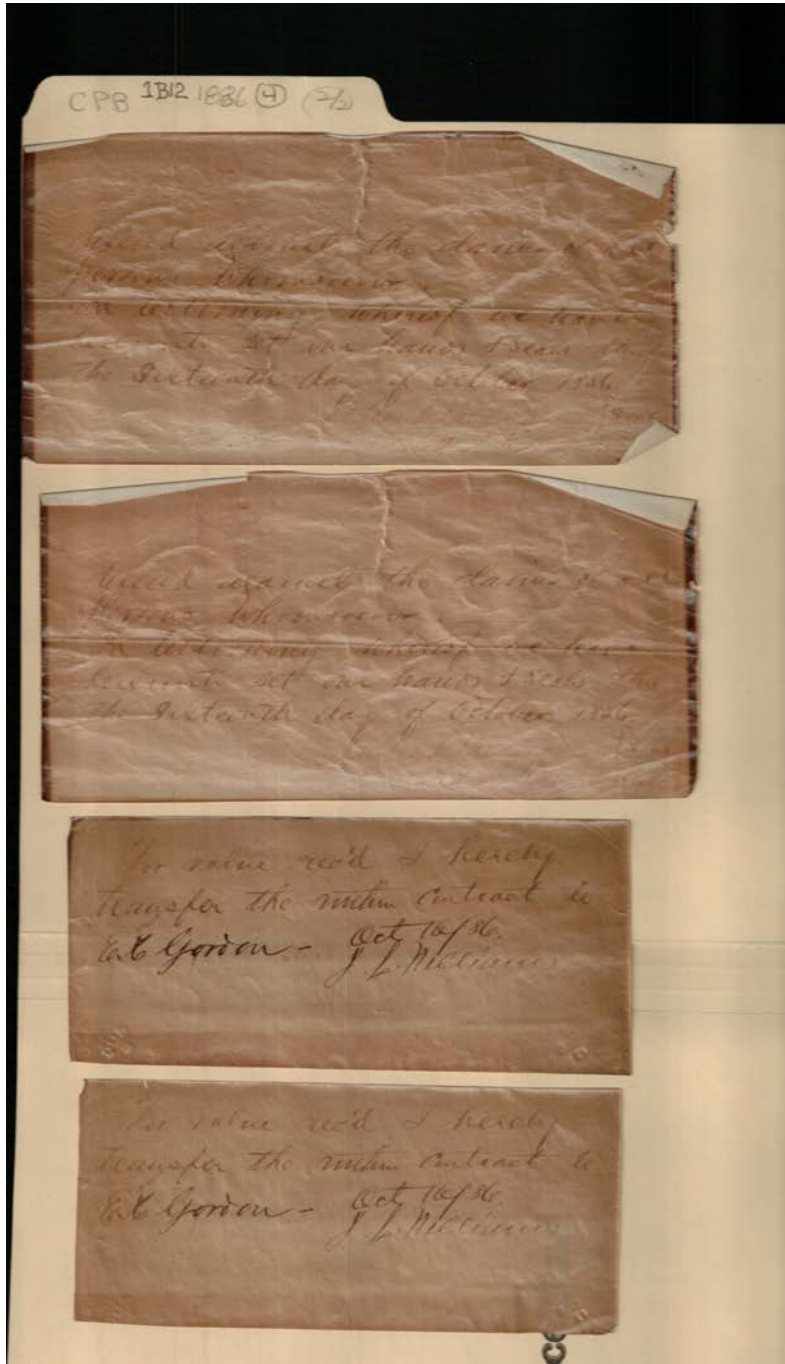 CPB 1B12 1886 (4) (2/2)
against the claims
persons whomsoever
In testimony whereof we have
hereunto set our hands & seals
the Sixteenth day of October 1886
against the claims
persons whomsoever
In testimony whereof we have
hereunto set our hands & seals this
the Sixteenth day of October 1886
For value rec'd I hereby
transfer the within contract to
E. C Gordon - Oct 16/86.
J. L.
For value rec'd I hereby
transfer the within contract to
E. C Gordon - Oct 16/86.
J. L.